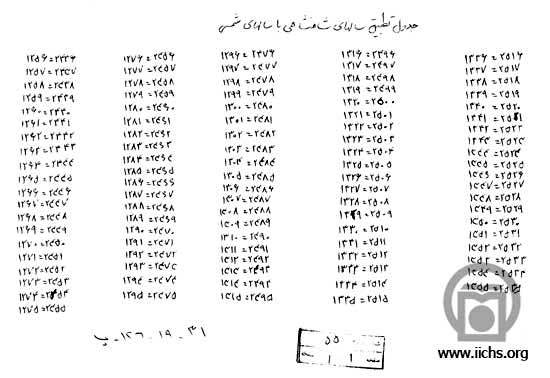 جدول تطبیق سالهای شاهنشاهی با سالهای شمسی
۱۲۵۶=۲۴۳۶
۱۲۵۷=۲۴۳۷
۱۲۵۸=۲۴۳۸
۱۲۵۹=۲۴۳۹
۱۲۶۰=۲۴۴۰
۱۲۶۱=۲۴۴۱
۱۲۶۲=۲۴۴۲
۱۲۶۳=۲۴۴۳
۱۲۶۴=۲۴۴۴
۱۲۶۵=۲۴۴۵
۱۲۶۶=۲۴۴۶
۱۲۶۷=۲۴۴۷
۱۲۶۸=۲۴۴۸
۱۲۶۹=۲۴۴۹
۱۲۷۰=۲۴۵۰
۱۲۷۱=۲۴۵۱
۱۲۷۲=۲۴۵۲
۱۲۷۳=۲۴۵۳
۱۲۷۴=۲۴۵۴
۱۲۷۵=۲۴۵۵
۱۲۷۶=۲۴۵۶
۱۲۷۷=۲۴۵۷
۱۲۷۸=۲۴۵۸
۱۲۷۹=۲۴۵۹
۱۲۸۰=۲۴۶۰
۱۲۸۱=۲۴۶۱
۱۲۸۲=۲۴۶۲
۱۲۸۳=۲۴۶۳
۱۲۸۴=۲۴۶۴
۱۲۸۵=۲۴۶۵
۱۲۸۶=۲۴۶۶
۱۲۸۷=۲۴۶۷
۱۲۸۸=۲۴۶۸
۱۲۸۹=۲۴۶۹
۱۲۹۰=۲۴۷۰
۱۲۹۱=۲۴۷۱
۱۲۹۲=۲۴۷۲
۱۲۹۳=۲۴۷۳
۱۲۹۴=۲۴۷۴
۱۲۹۵=۲۴۷۵
۱۲۹۶=۲۴۷۶
۱۲۹۷=۲۴۷۷
۱۲۹۸=۲۴۷۸
۱۲۹۹=۲۴۷۹
۱۳۰۰=۲۴۸۰
۱۳۰۱=۲۴۸۱
۱۳۰۲=۲۴۸۲
۱۳۰۳=۲۴۸۳
۱۳۰۴=۲۴۸۴
۱۳۰۵=۲۴۸۵
۱۳۰۶=۲۴۸۶
۱۳۰۷=۲۴۸۷
۱۳۰۸=۲۴۸۸
۱۳۰۹=۲۴۸۹
۱۳۱۰=۲۴۹۰
۱۳۱۱=۲۴۹۱
۱۳۱۲=۲۴۹۲
۱۳۱۳=۲۴۹۳
۱۳۱۴=۲۴۹۴
۱۳۱۵=۲۴۹۵
۱۳۱۶=۲۴۹۶
۱۳۱۷=۲۴۹۷
۱۳۱۸=۲۴۹۸
۱۳۱۹=۲۴۹۹
۱۳۲۰=۲۵۰۰
۱۳۲۱=۲۵۰۱
۱۳۲۲=۲۵۰۲
۱۳۲۳=۲۵۰۳
۱۳۲۴=۲۵۰۴
۱۳۲۵=۲۵۰۵
۱۳۲۶=۲۵۰۶
۱۳۲۷=۲۵۰۷
۱۳۲۸=۲۵۰۸
۱۳۲۹=۲۵۰۹
۱۳۳۰=۲۵۱۰
۱۳۳۱=۲۵۱۱
۱۳۳۲=۲۵۱۲
۱۳۳۳=۲۵۱۳
۱۳۳۴=۲۵۱۴
۱۳۳۵=۲۵۱۵
۱۳۳۶=۲۵۱۶
۱۳۳۷=۲۵۱۷
۱۳۳۸=۲۵۱۸
۱۳۳۹=۲۵۱۹
۱۳۴۰=۲۵۲۰
۱۳۴۱=۲۵۲۱
۱۳۴۲=۲۵۲۲
۱۳۴۳=۲۵۲۳
۱۳۴۴=۲۵۲۴
۱۳۴۵=۲۵۲۵
۱۳۴۶=۲۵۲۶
۱۳۴۷=۲۵۲۷
۱۳۴۸=۲۵۲۸
۱۳۴۹=۲۵۲۹
۱۳۵۰=۲۵۳۰
۱۳۵۱=۲۵۳۱
۱۳۵۲=۲۵۳۲
۱۳۵۳=۲۵۳۳
۱۳۵۴=۲۵۳۴
۱۳۵۵=۲۵۳۵
۳۱-۱۹-۱۲۶-پ
۵۵
www.iichs.org